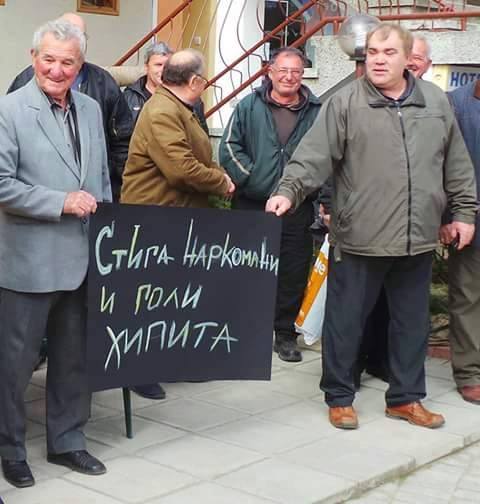 СТИГА НАРКОМАНИ
И ГОЛИ
ХИПИТА
HOT